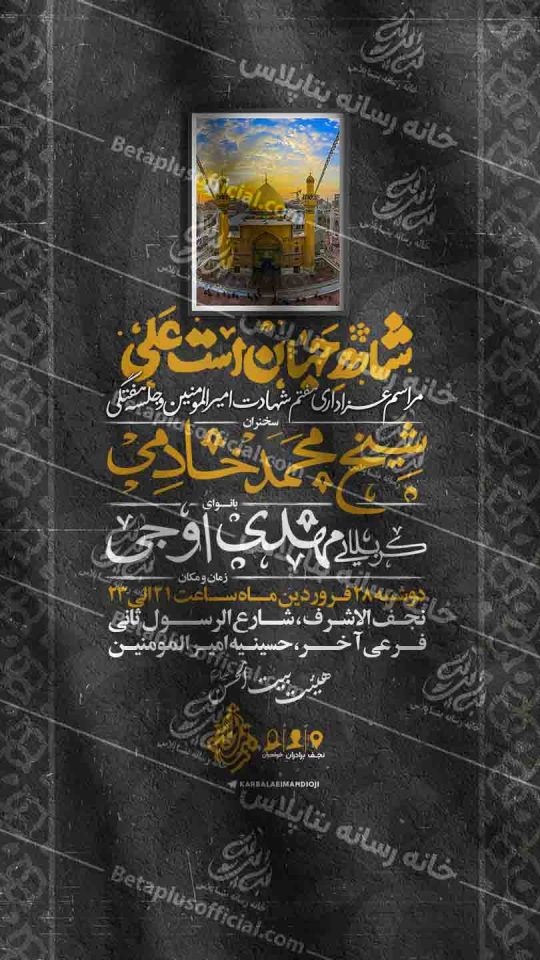 خانه رسانه بتاپلاس
Betaplusofficial.com
شاه دو جهان است علی
مراسم عزاداری هفتم شهادت امیرالمومنین و جلسه هفتگی
سخنران
شیخ محمد خادمی
بانوای
کربلایی مهدی اوجی
زمان و مکان
دوشنبه ۲۸ فروردین ماه ساعت ۲۱ الی ۲۳
نجف الاشرف، شارع الرسول ثانی
فرعی آخر، حسینیه امیرالمومنین
هیئت بیت الحسن
نجف برادران خواهران
KARBALAEIMAHDIOJI
خانه رسانه بتاپلاس
Betaplusofficial.com